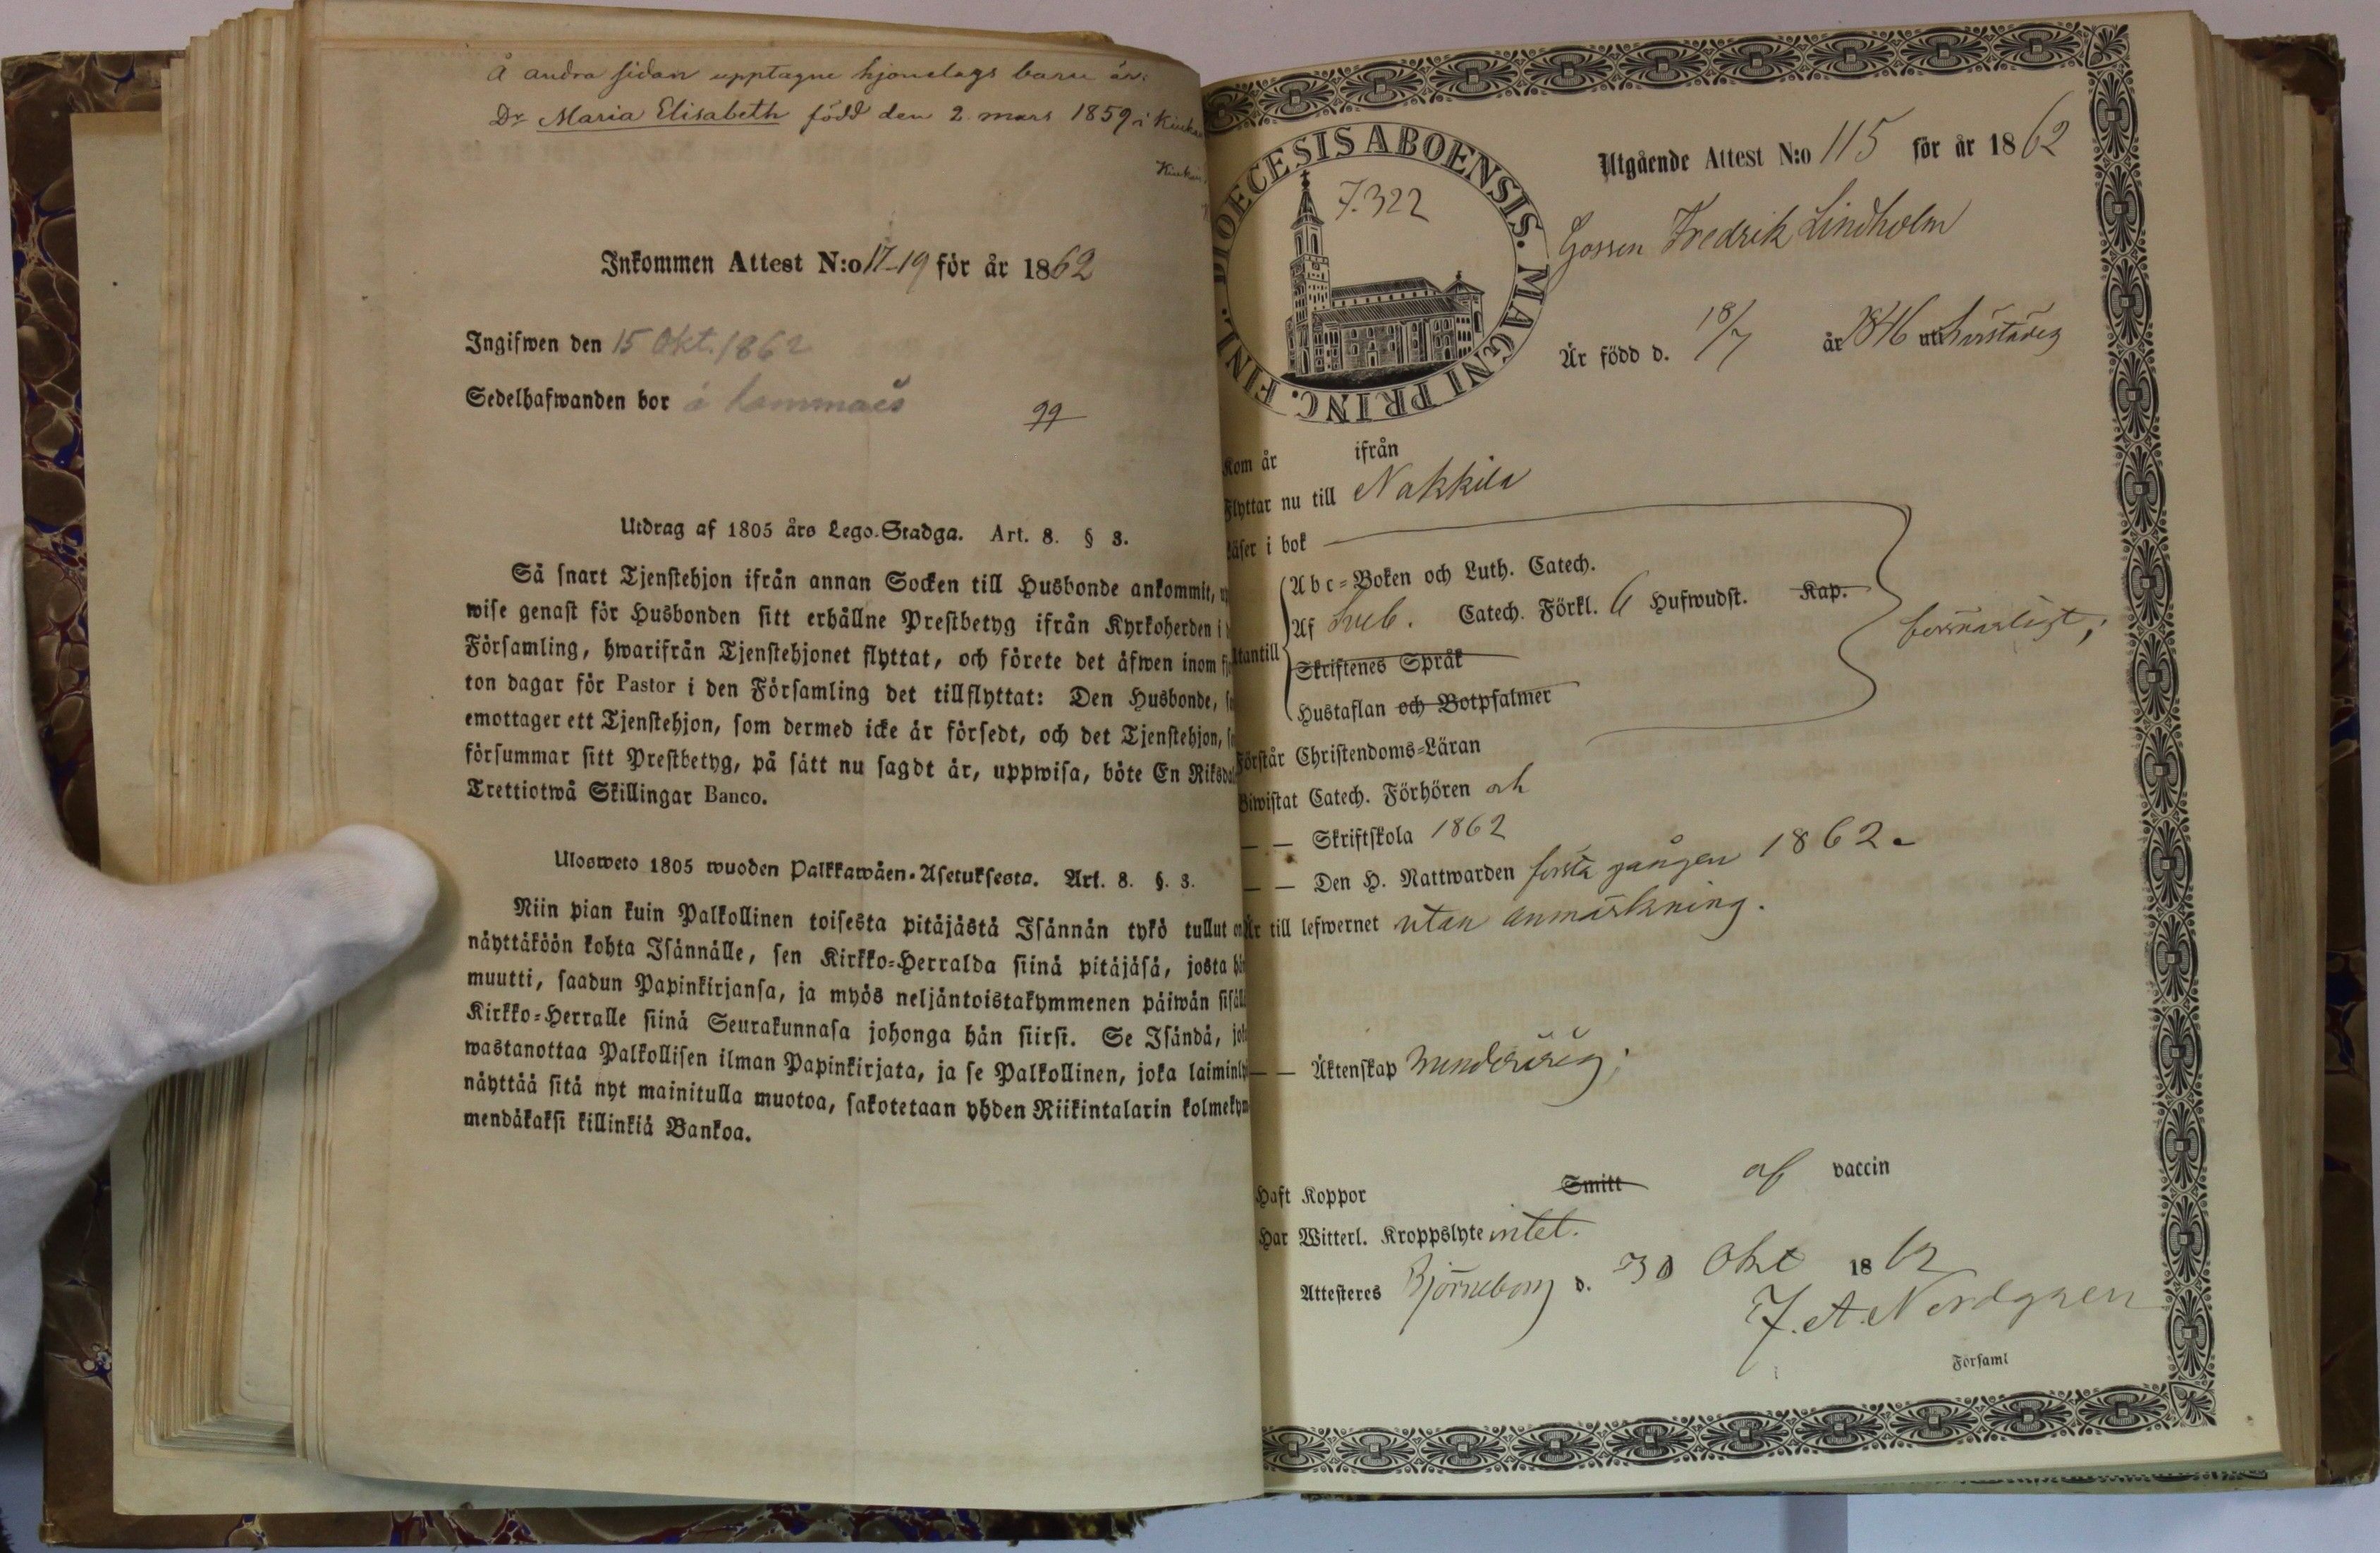 Å andra sidan upptagne hjonelags barn är:
Dr Maria Elisabeth född den 2 mars 1859 i
Inkommen Attest N:o 17-19 för år 1862
Ingifwen den 15 Okt. 1862
Sedelhafwanden bor å
99
Utdrag af 1805 års Lego-Stadga. Art. 8. § 3.
Så snart Tjenstehjon ifrån annan Socken till Husbonde ankommit,
wise genast för Husbonden sitt erhållne Prestbetyg ifrån Kyrkoherden i
Församling, hwarifrån Tjenstehjonet flyttat, och förete det äfwen inom
ton dagar för Pastor i den Församling det tillflyttat: Den Husbonde,
emottager ett Tjenstehjon, som dermed icke är försedt, och det Tjenstehjon,
försummar sitt Prestbetyg, på sätt nu sagdt är, uppwisa, böte En Riksd
Trettiotwå Skillingar Banco.
Ulosweto 1805 wuoden Palkkawäen-Asetuksesta. Art. 8. §. 3.
Niin pian kuin Palkollinen toisesta pitäjästä Isännän tykö tullut on
näyttäköön kohta Isännälle, sen Kirkko-Herralda siinä pitäjäsä, josta
muutti, saadun Papinkirjansa, ja myös neljäntoistakymmenen päiwän sisäll
Kirkko-Herralle siinä Seurakunnasa johonga hän siirsi. Se Isändä,
wastanottaa Palkollisen ilman Papinkirjata, ja se Palkollinen, joka laiminly
näyttää sitä nyt mainitulla muotoa, sakotetaan yhden Riikintalarin kolmekym
mendäkaksi killinkiä Bankoa.
DIOECESIS ABOENSIS. MAGNI PRINC. FINL.
F. 322
Utgående Attest N:o 115 för år 1862
Gossen Fredrik Lindholm
Är född d. 18/7 år 1846 uti härstädes
Kom år ifrån
Flyttar nu till Nakkila
Läser i bok
Abc-Boken och Luth. Catech.
Utantill
Af Sveb. Catech. Förkl. 6 Hufwudst. Kap.
försvarligt;
Skriftenes Språk
Hustaflan och Botpsalmer
Förstår Christendoms-Läran
Biwistat Catech. Förhören och
— — Skriftskola 1862
— — Den H. Nattwarden första gången 1862.
Är till lefwernet utan anmärkning.
— — Äktenskap minderårig;
Haft Koppor Smitt af vaccin
Har Witterl. Kroppslyte intet.
Attesteres Björneborg d. 30 Okt 1862
F. A. Nordgren
Församl